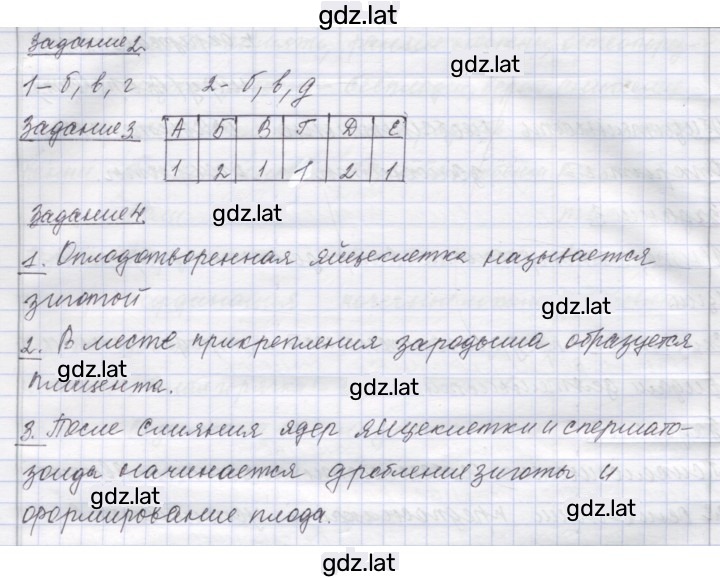 gdz.lat
Задание 2.
gdz.lat
1 - б, в, г 2 - б, в, д
Задание 3 А Б В Г Д Е
1 2 1 1 2 1
Задание 4. gdz.lat
1. Оплодотворенная яйцеклетка называется
зиготой
gdz.lat
2. В месте прикрепления зародыша образуется
gdz.lat
плацента.
gdz.lat
3. После слияния ядер яйцеклетки и спермато-
зоида начинается дробление зиготы и
gdz.lat
формирование плода.
gdz.lat
gdz.lat